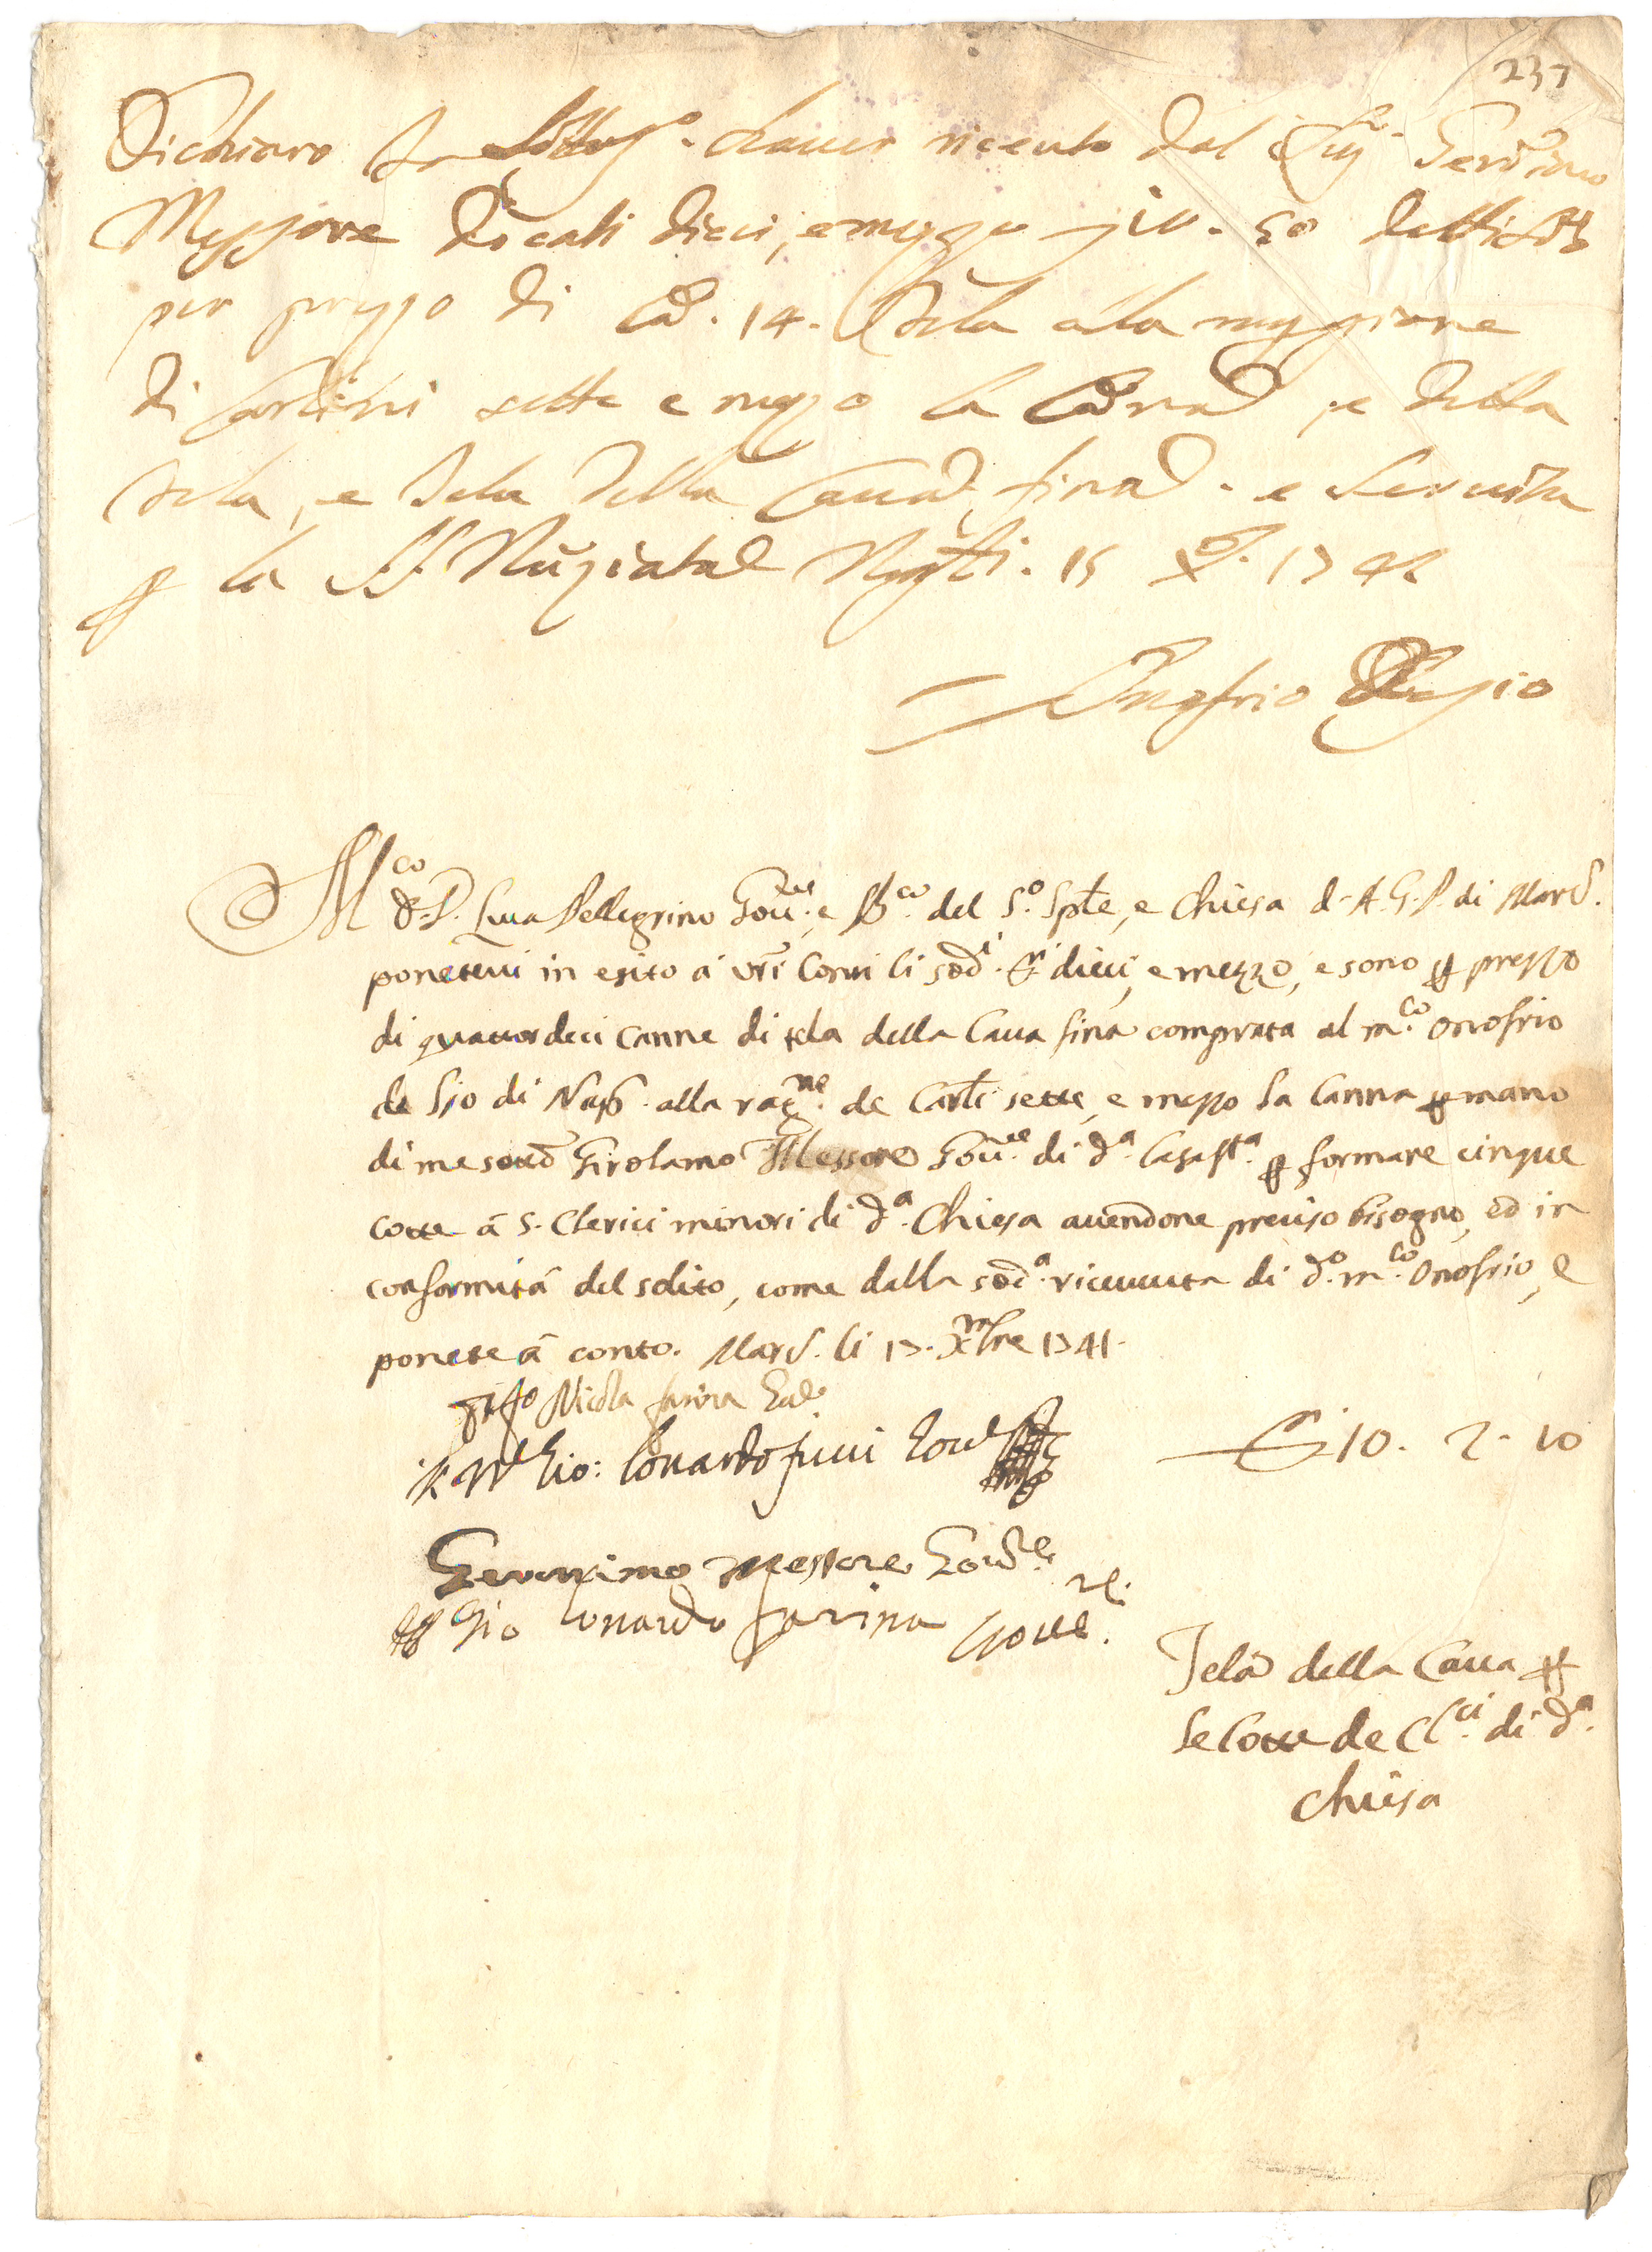 237
Dichiaro Io haver ricevuto dal Sig.
Messore docati dieci, e mezzo 10-50 detti
per prezzo di Cã. 14. Tela alla raggione
di Carlini sette e mezo la Canna, e detta
tela, e Tela della Cava fina. e servita
ꝑ la SS. Nũziata Nap. 15 X. 1741
Onofrio
M.co D. P. Luca Pellegrino Gov.re, e B.co del S.o Sple, e Chiesa d. A. G. P. di Mard.
ponetevi in esito a vr̃i Conti li sod.i D.i dieci, e mezzo, e sono ꝑ prezzo
di quattordeci canne di tela della Cava fina comprata al m.co Onofrio
de Sio di Nap. alla rag.ne de Carli sette, e mezzo la Canna ꝑ mano
di me sotto Girolamo Messore Gov.re di d.a Casa st.a ꝑ formare cinque
cotte à S. Clerici minori di d.a Chiesa avendone preciso bisogno, ed in
conformità del solito, come dalla sod.a ricevuta di d.o m.co Onofrio, e
ponete à conto. Mard. li 17. Xmbre 1741.
Nicola farina
Gio: Lonardo
D.i 10. 2. 10
Geronimo Messore Gov.re
Gio Lonardo farina Gov.re
Tela della Cava ꝑ
le Cotte de Cl.ci di d.a
Chiesa